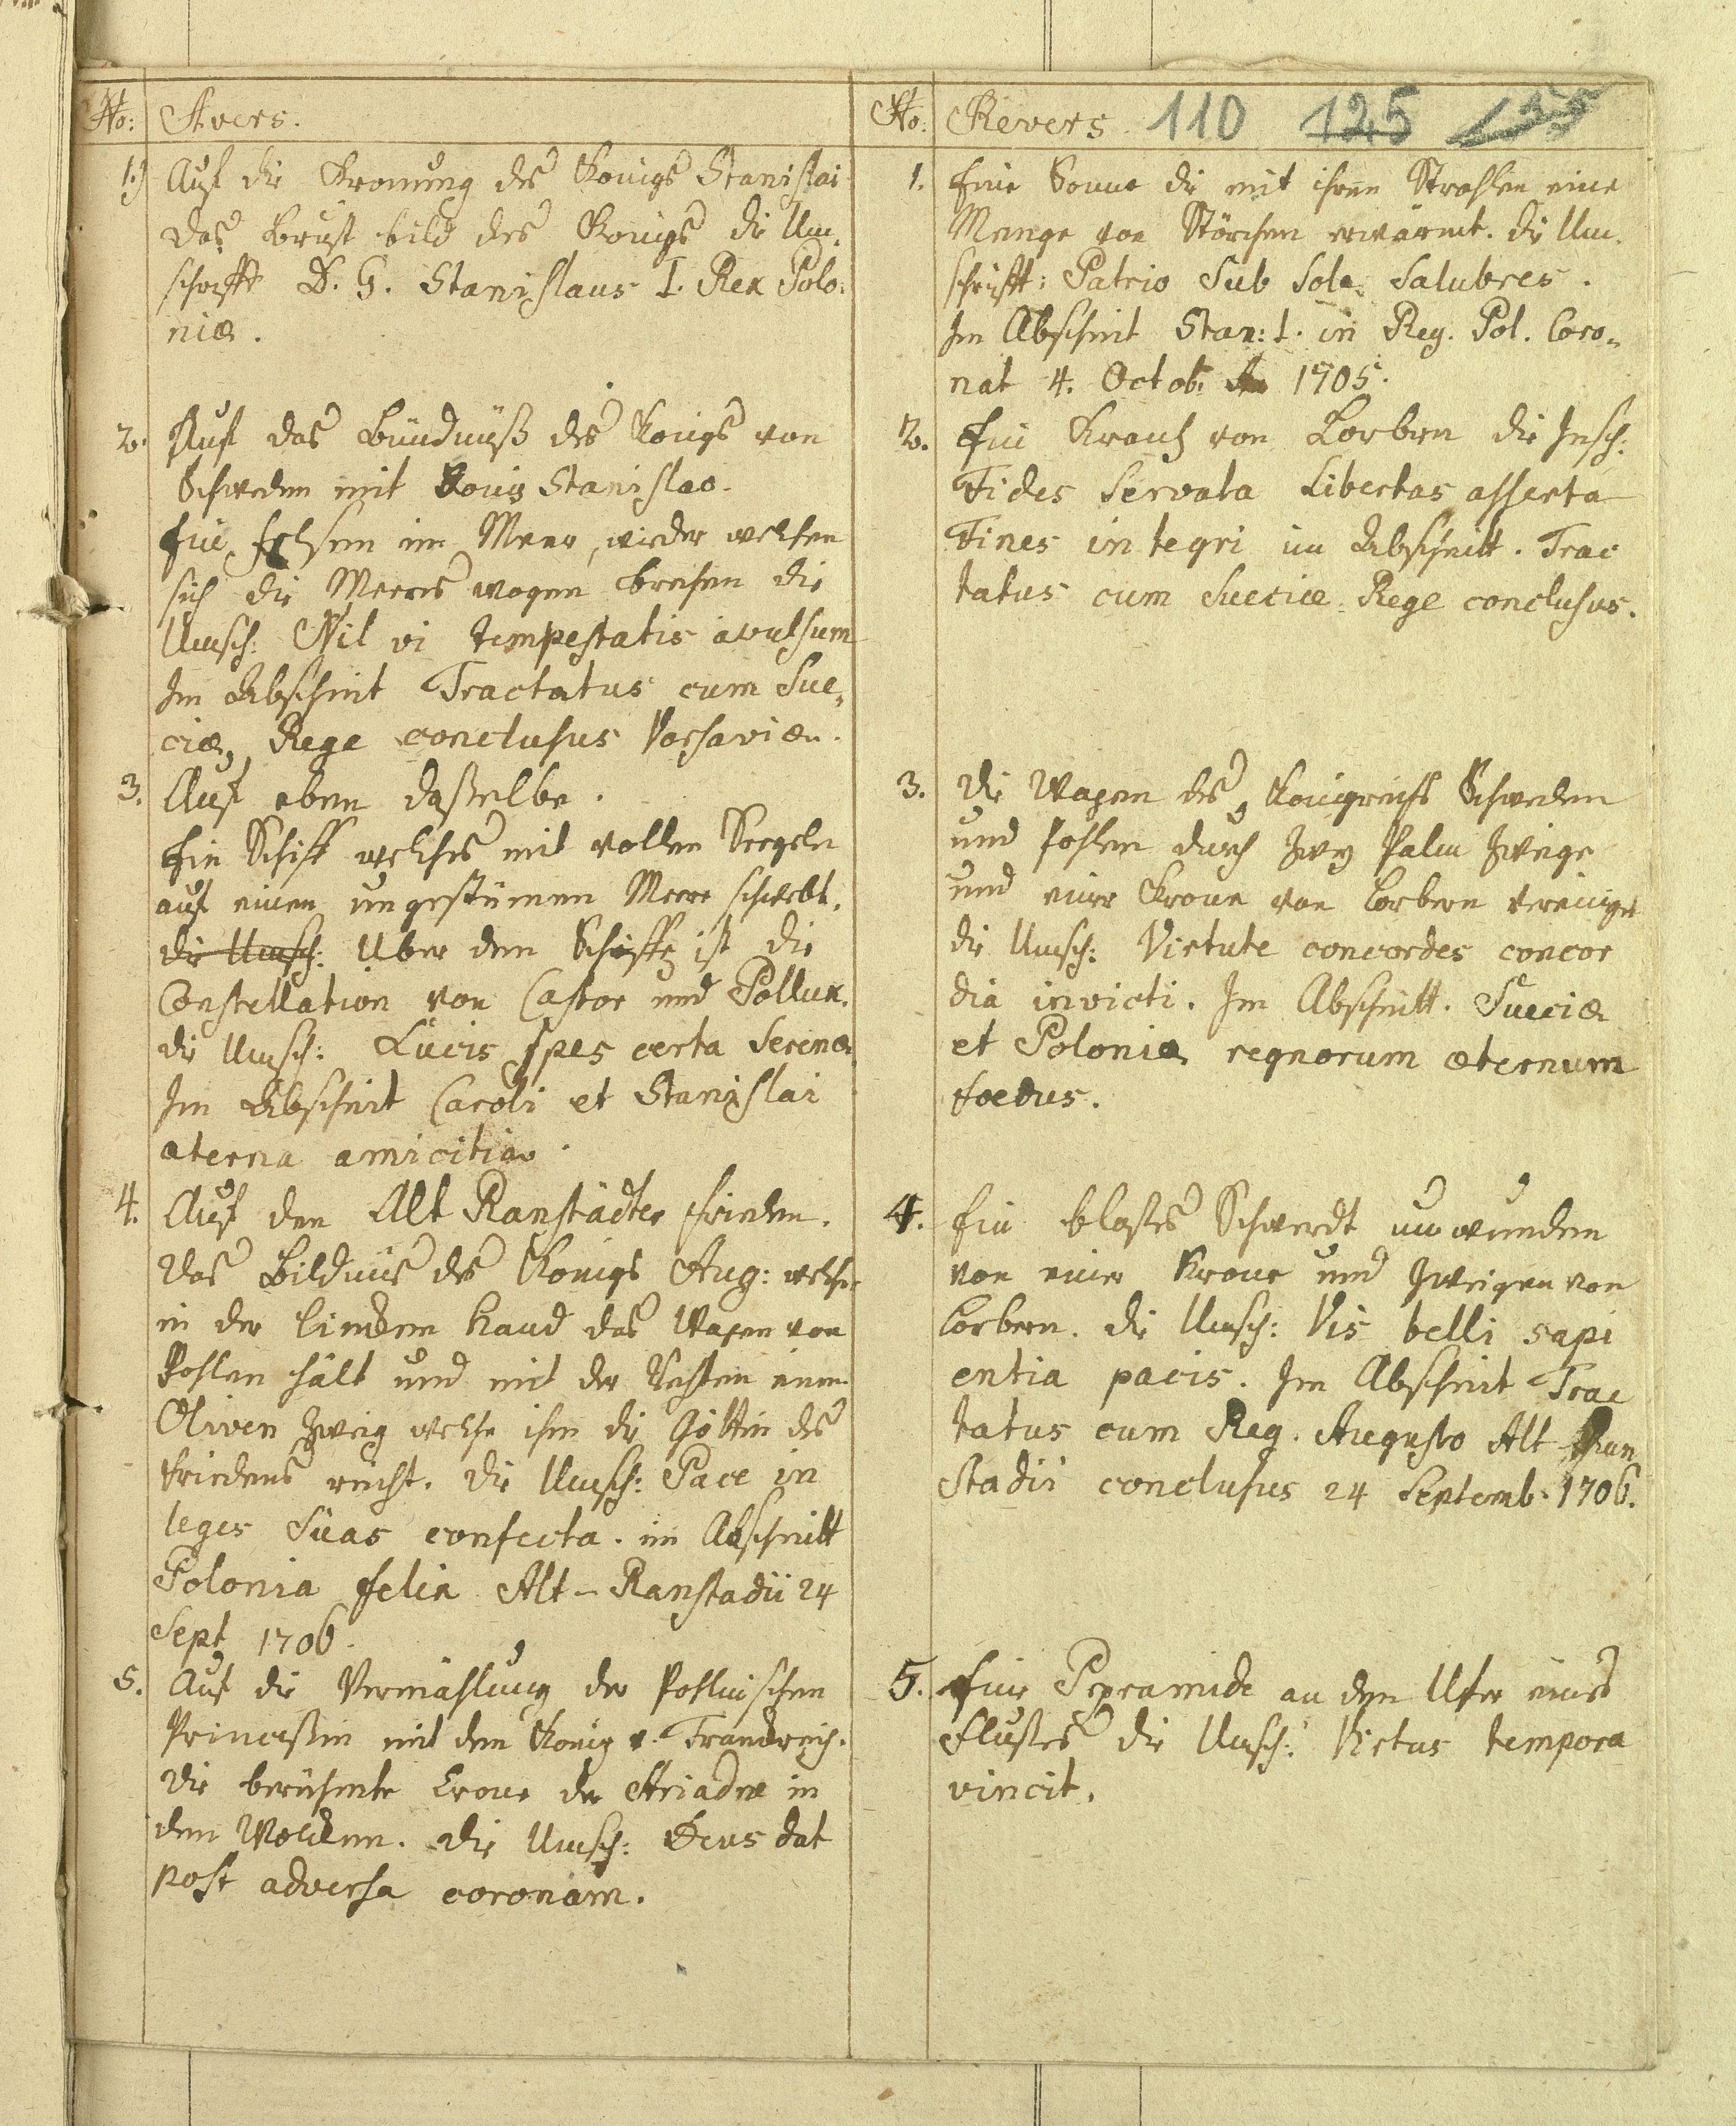 No: Avers.
1.) Auf die Kronung des Konigs Stanislai
das Brust bild des Konigs die Um,
schrifft D. G. Stanislaus I. Rex Polo:
niæ.
2. Auf das Bündnüß des Konigs von
Schweden mit König Stanislao.
Ein Felsen im Meer, wieder welchen
sich die Meeres wogen brechen die
Umsch: Nil vi tempestatis avulsum
Im Abschnit Tractatus cum Sue,
ciæ, Rege conclusus Varsaviæ.
3. Auf eben daßelbe.
Ein Schiff welches mit vollen Seegeln
auf einen ungestümen Meere schwebt.
die Umsch: Uber dem Schiffe ist die
Constellation von Castor und Pollux.
die Umsch: Lucis spes certa serenæ.
Im Abschnit Caroli et Stanislai
æterna amicitia.
4. Auf den Alt Ranstädter frieden.
das Bildnüs des Konigs Aug: welcher
in der lincken Hand das Wapen von
Pohlen hält und mit der Rechten einen
Oliven Zweig welche ihm die Göttin des
friedens reicht. die Umsch: Pace in
leges Suas confecta. im Abschnitt
Polonia felix Alt-Ranstadii 24
Sept 1706.
5. Auf die Vermählung der Pohlnischen
Princeßin mit dem König v. Franckreich.
die berühmte Crone der Ariadne in
den Wolcken. die Umsch: Deus dat
post adversa coronam.
No: Revers 110 125 155
1. Eine Sonne die mit ihren Strahlen eine
Menge von Störchen erwärmt. die Um,
schrifft: Patrio Sub Sole Salubres.
Im Abschnit Stan: I. in Reg. Pol. Coro,
nat 4. Octob. 1705.
2. Ein Krantz von Lorbern die Insch:
Fides Servata Libertas asserta
Fines integri im Abschnitt. Trac
tatus cum Sueciæ Rege conclusus.
3. die Wapen des Konigreichs Schweden
und Pohlen durch Zwey Palm Zweige
und einer Krone von Lorbern vereiniget
die Umsch: Virtute concordes concor
dia invicti. Im Abschnitt. Sueciæ
et Poloniæ regnorum æternum
foedus.
4. Ein bloßes Schwerdt umwunden
von einer Krone und Zweigen von
Lorbern. die Umsch: Vis belli sapi
entia pacis. Im Abschnit Trac
tatus cum Reg. Augusto Alt Ran
Stadii conclusus 24 Septemb. 1706.
5. Eine Pyramide an dem Ufer eines
Flußes die Umsch: Virtus tempora
vincit.